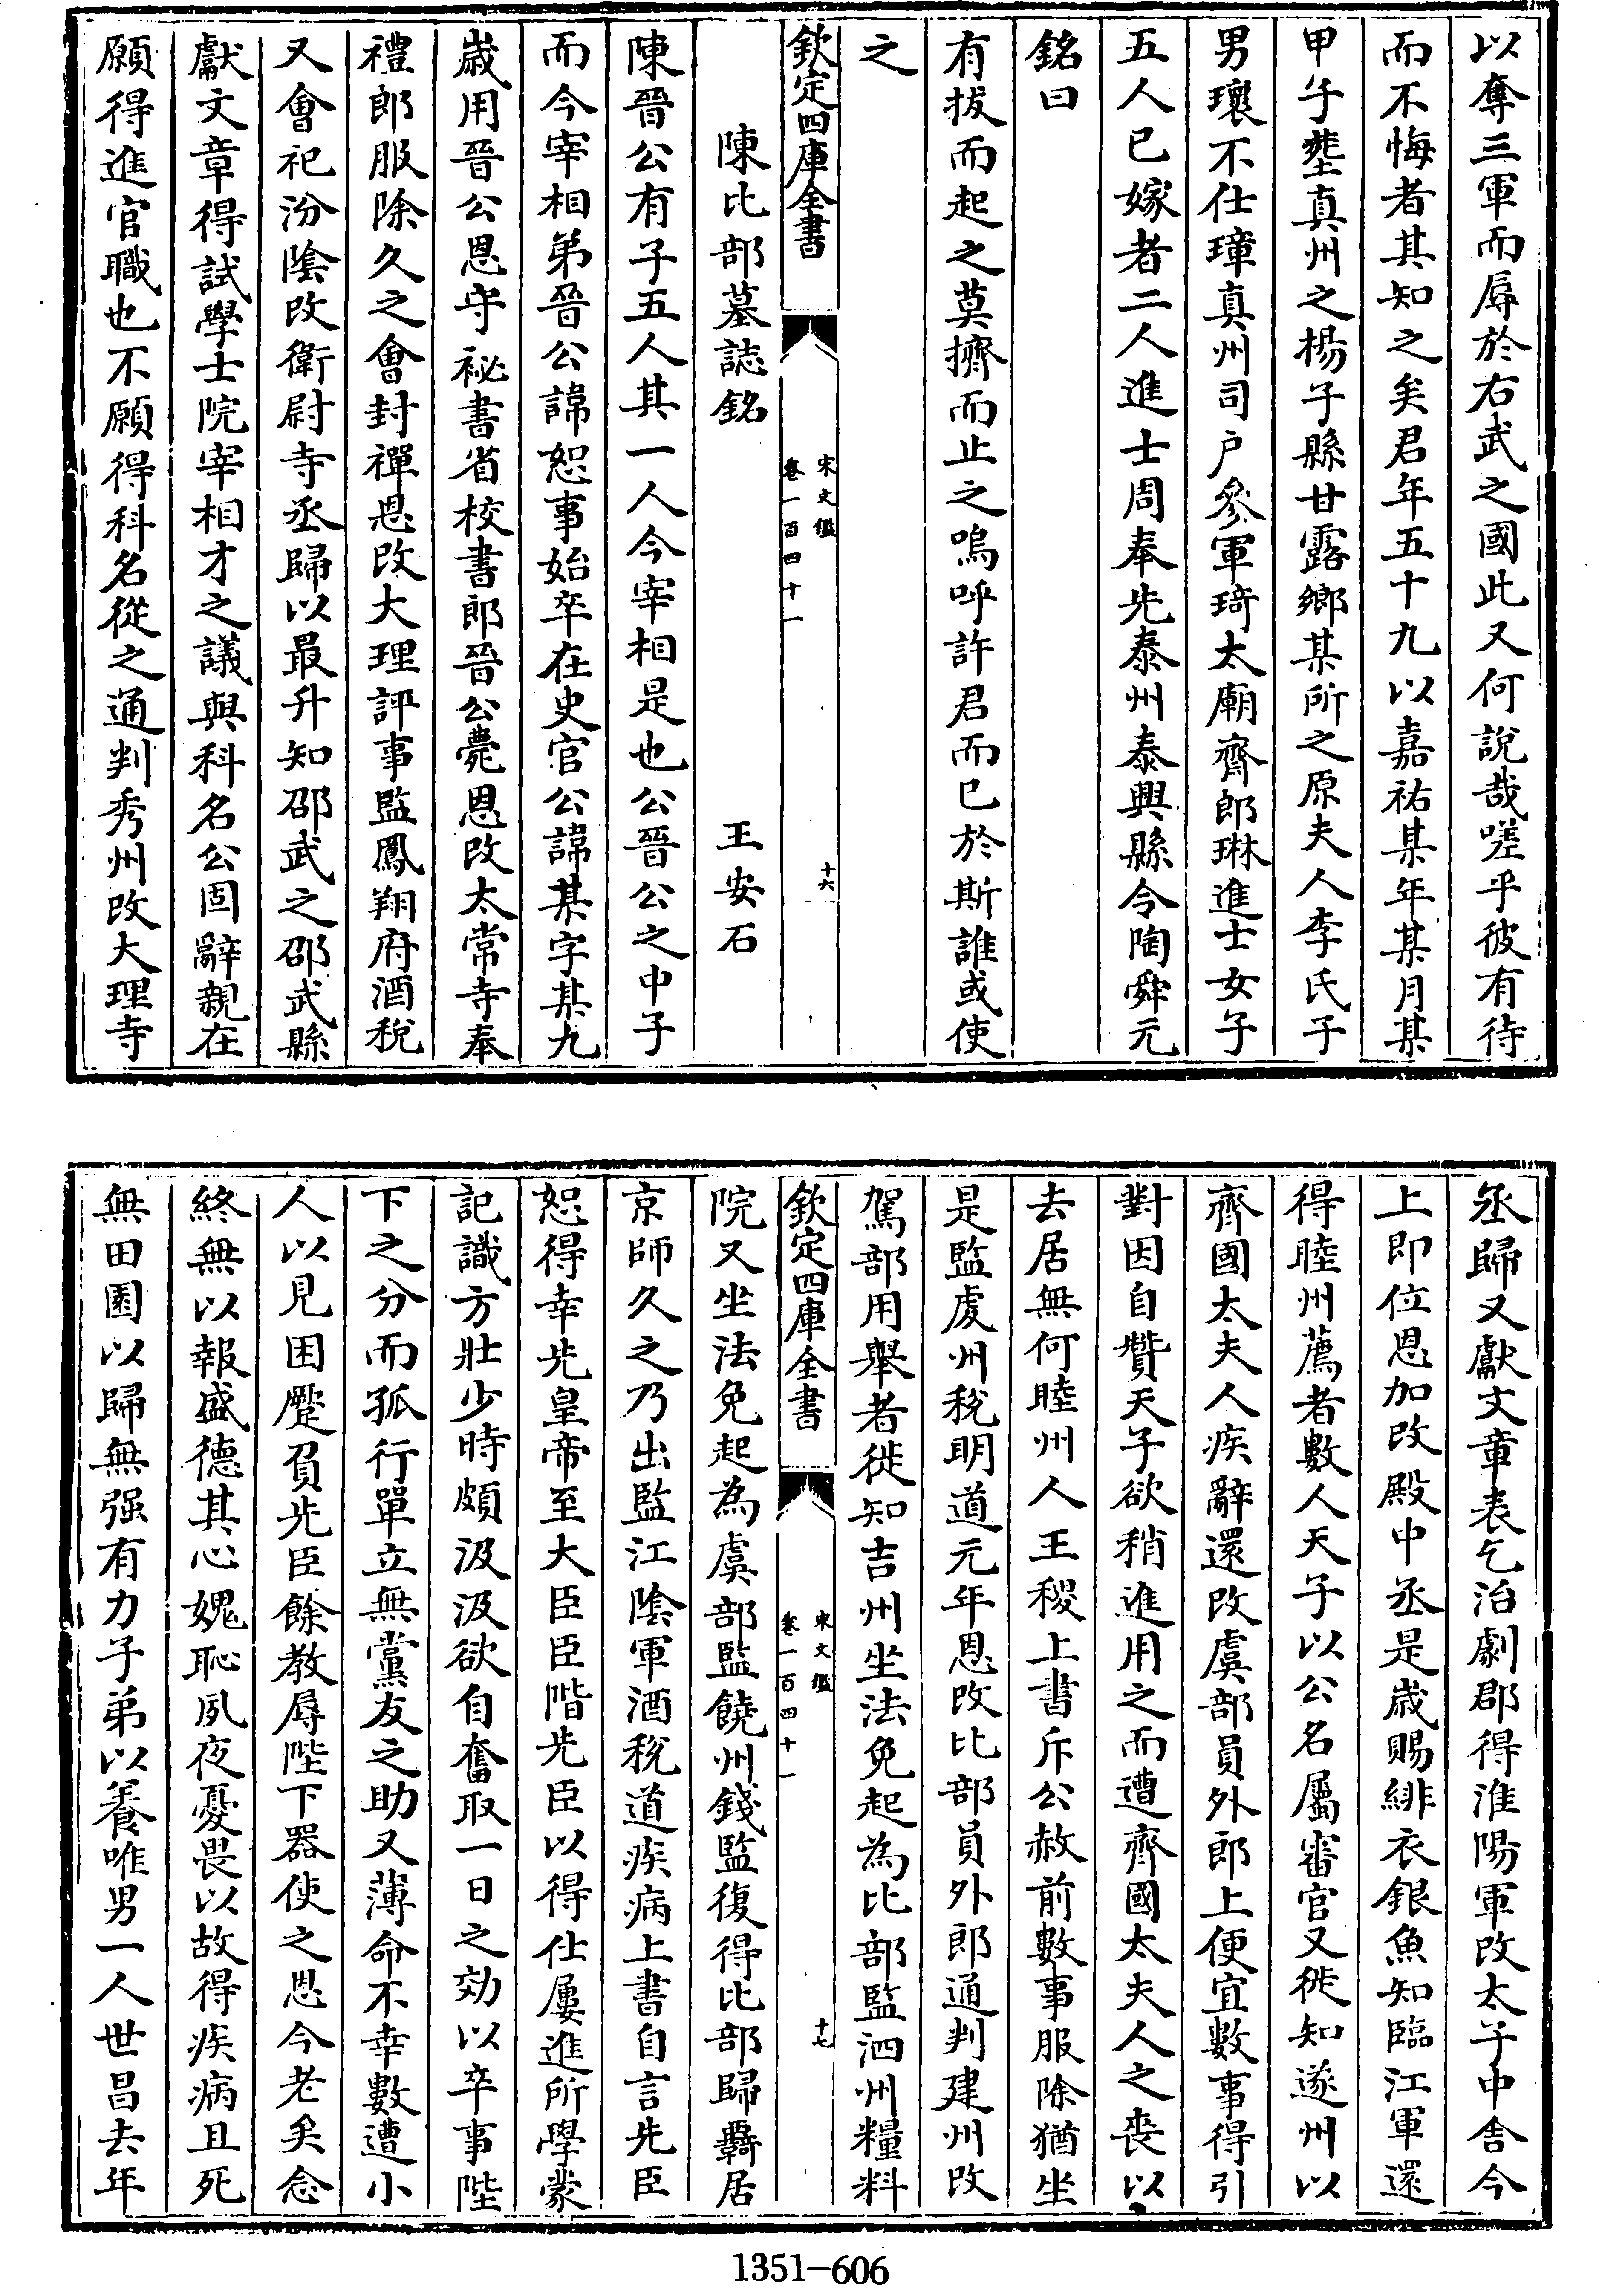 以奪三軍而辱於右武之國此又何說哉嗟乎彼有待
而不悔者其知之矣君年五十九以嘉祐某年某月某
甲子塟真州之楊子縣甘露鄉某所之原夫人李氏子
男瓌不仕璋真州司户參軍琦太廟齋郎琳進士女子
五人已嫁者二人進士周奉先泰州泰興縣令陶舜元
銘曰
有拔而起之莫擠而止之嗚呼許君而已於斯誰或使
之
欽定四庫全書
宋文鑑
卷一百四十一
十六
陳比部墓誌銘
王安石
陳晉公有子五人其一人今宰相是也公晉公之中子
而今宰相弟晉公諱恕事始卒在史官公諱某字某九
歲用晉公恩守祕書省校書郎晉公薨恩改太常寺奉
禮郎服除久之會封禪恩改大理評事監鳳翔府酒稅
又會祀汾陰改衛尉寺丞歸以最升知邵武之邵武縣
獻文章得試學士院宰相才之議與科名公固辭親在
願得進官職也不願得科名從之通判秀州改大理寺
丞歸又獻文章表乞治劇郡得淮陽軍改太子中舍今
上即位恩加改殿中丞是歲賜緋衣銀魚知臨江軍還
得睦州薦者數人天子以公名屬審官又徙知遂州以
齊國太夫人疾辭還改虞部員外郎上便宜數事得引
對因自贊天子欲稍進用之而遭齊國太夫人之喪以
去居無何睦州人王稷上書斥公赦前數事服除猶坐
是監處州稅明道元年恩改比部員外郎通判建州改
駕部用舉者徙知吉州坐法免起為比部監泗州糧料
欽定四庫全書
宋文鑑
卷一百四十一
十七
院又坐法免起為虞部監饒州錢監復得比部歸覊居
京師久之乃出監江陰軍酒稅道疾病上書自言先臣
恕得幸先皇帝至大臣臣階先臣以得仕屢進所學蒙
記識方壯少時頗汲汲欲自奮取一日之効以卒事陛
下之分而孤行單立無黨友之助又薄命不幸數遭小
人以見困躓負先臣餘教辱陛下器使之恩今老矣念
終無以報盛德其心媿恥夙夜憂畏以故得疾病且死
無田園以歸無强有力子弟以養唯男一人世昌去年
1351-606